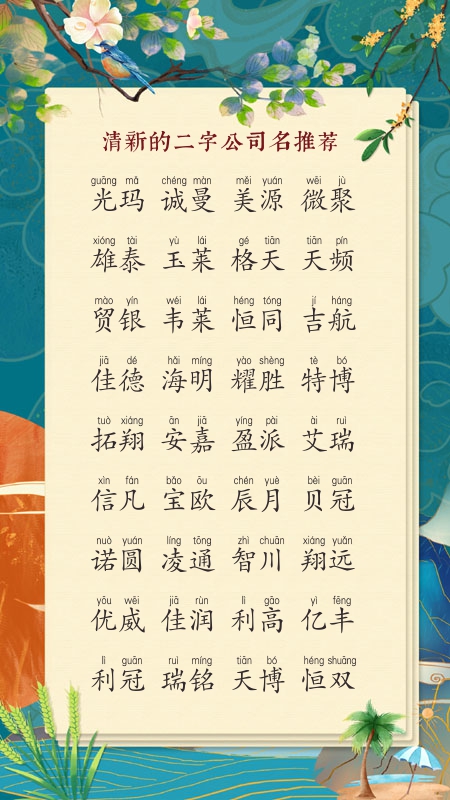 清新的二字公司名推荐
guāng mǎ chéng màn měi yuán wēi jù
光玛 诚曼 美源 微聚
xióng tài yù lái gé tiān tiān pín
雄泰 玉莱 格天 天频
mào yín wéi lái héng tóng jí háng
贸银 韦莱 恒同 吉航
jiā dé hǎi míng yào shèng tè bó
佳德 海明 耀胜 特博
tuò xiáng ān jiā yíng pài ài ruì
拓翔 安嘉 盈派 艾瑞
xìn fán bǎo ōu chén yuè bèi guān
信凡 宝欧 辰月 贝冠
nuò yuán líng tōng zhì chuān xiáng yuǎn
诺圆 凌通 智川 翔远
yōu wēi jiā rùn lì gāo yì fēng
优威 佳润 利高 亿丰
lì guān ruì míng tiān bó héng shuāng
利冠 瑞铭 天博 恒双